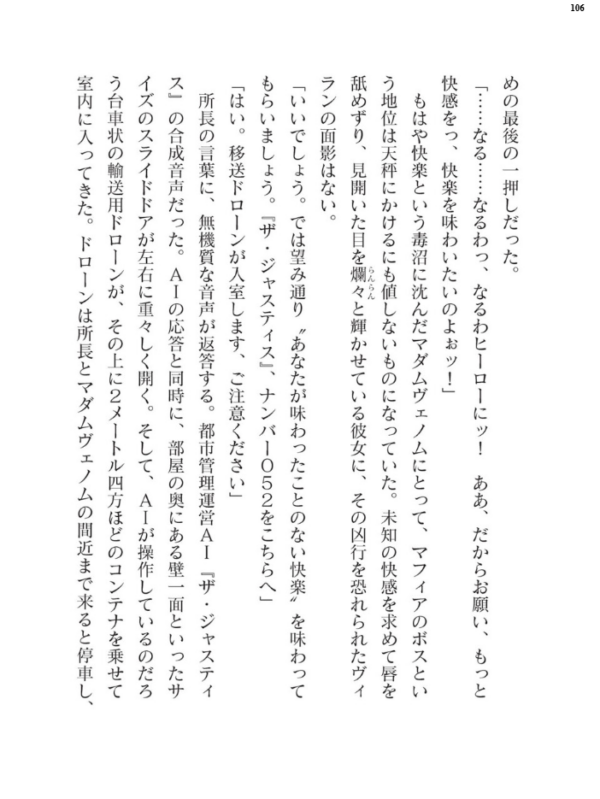 106
めの最後の一押しだった。
「……なる……なるわっ、なるわヒーローにッ！　ああ、だからお願い、もっと
快感をっ、快楽を味わいたいのよぉッ！」
　もはや快楽という毒沼に沈んだマダムヴェノムにとって、マフィアのボスとい
う地位は天秤にかけるにも値しないものになっていた。未知の快感を求めて唇を
舐めずり、見開いた目を爛々らんらんと輝かせている彼女に、その凶行を恐れられたヴィ
ランの面影はない。
「いいでしょう。では望み通り〝あなたが味わったことのない快楽〟を味わって
もらいましょう。『ザ・ジャスティス』、ナンバー０５２をこちらへ」
「はい。移送ドローンが入室します、ご注意ください」
　所長の言葉に、無機質な音声が返答する。都市管理運営ＡＩ『ザ・ジャスティ
ス』の合成音声だった。ＡＩの応答と同時に、部屋の奥にある壁一面といったサ
イズのスライドドアが左右に重々しく開く。そして、ＡＩが操作しているのだろ
う台車状の輸送用ドローンが、その上に２メートル四方ほどのコンテナを乗せて
室内に入ってきた。ドローンは所長とマダムヴェノムの間近まで来ると停車し、